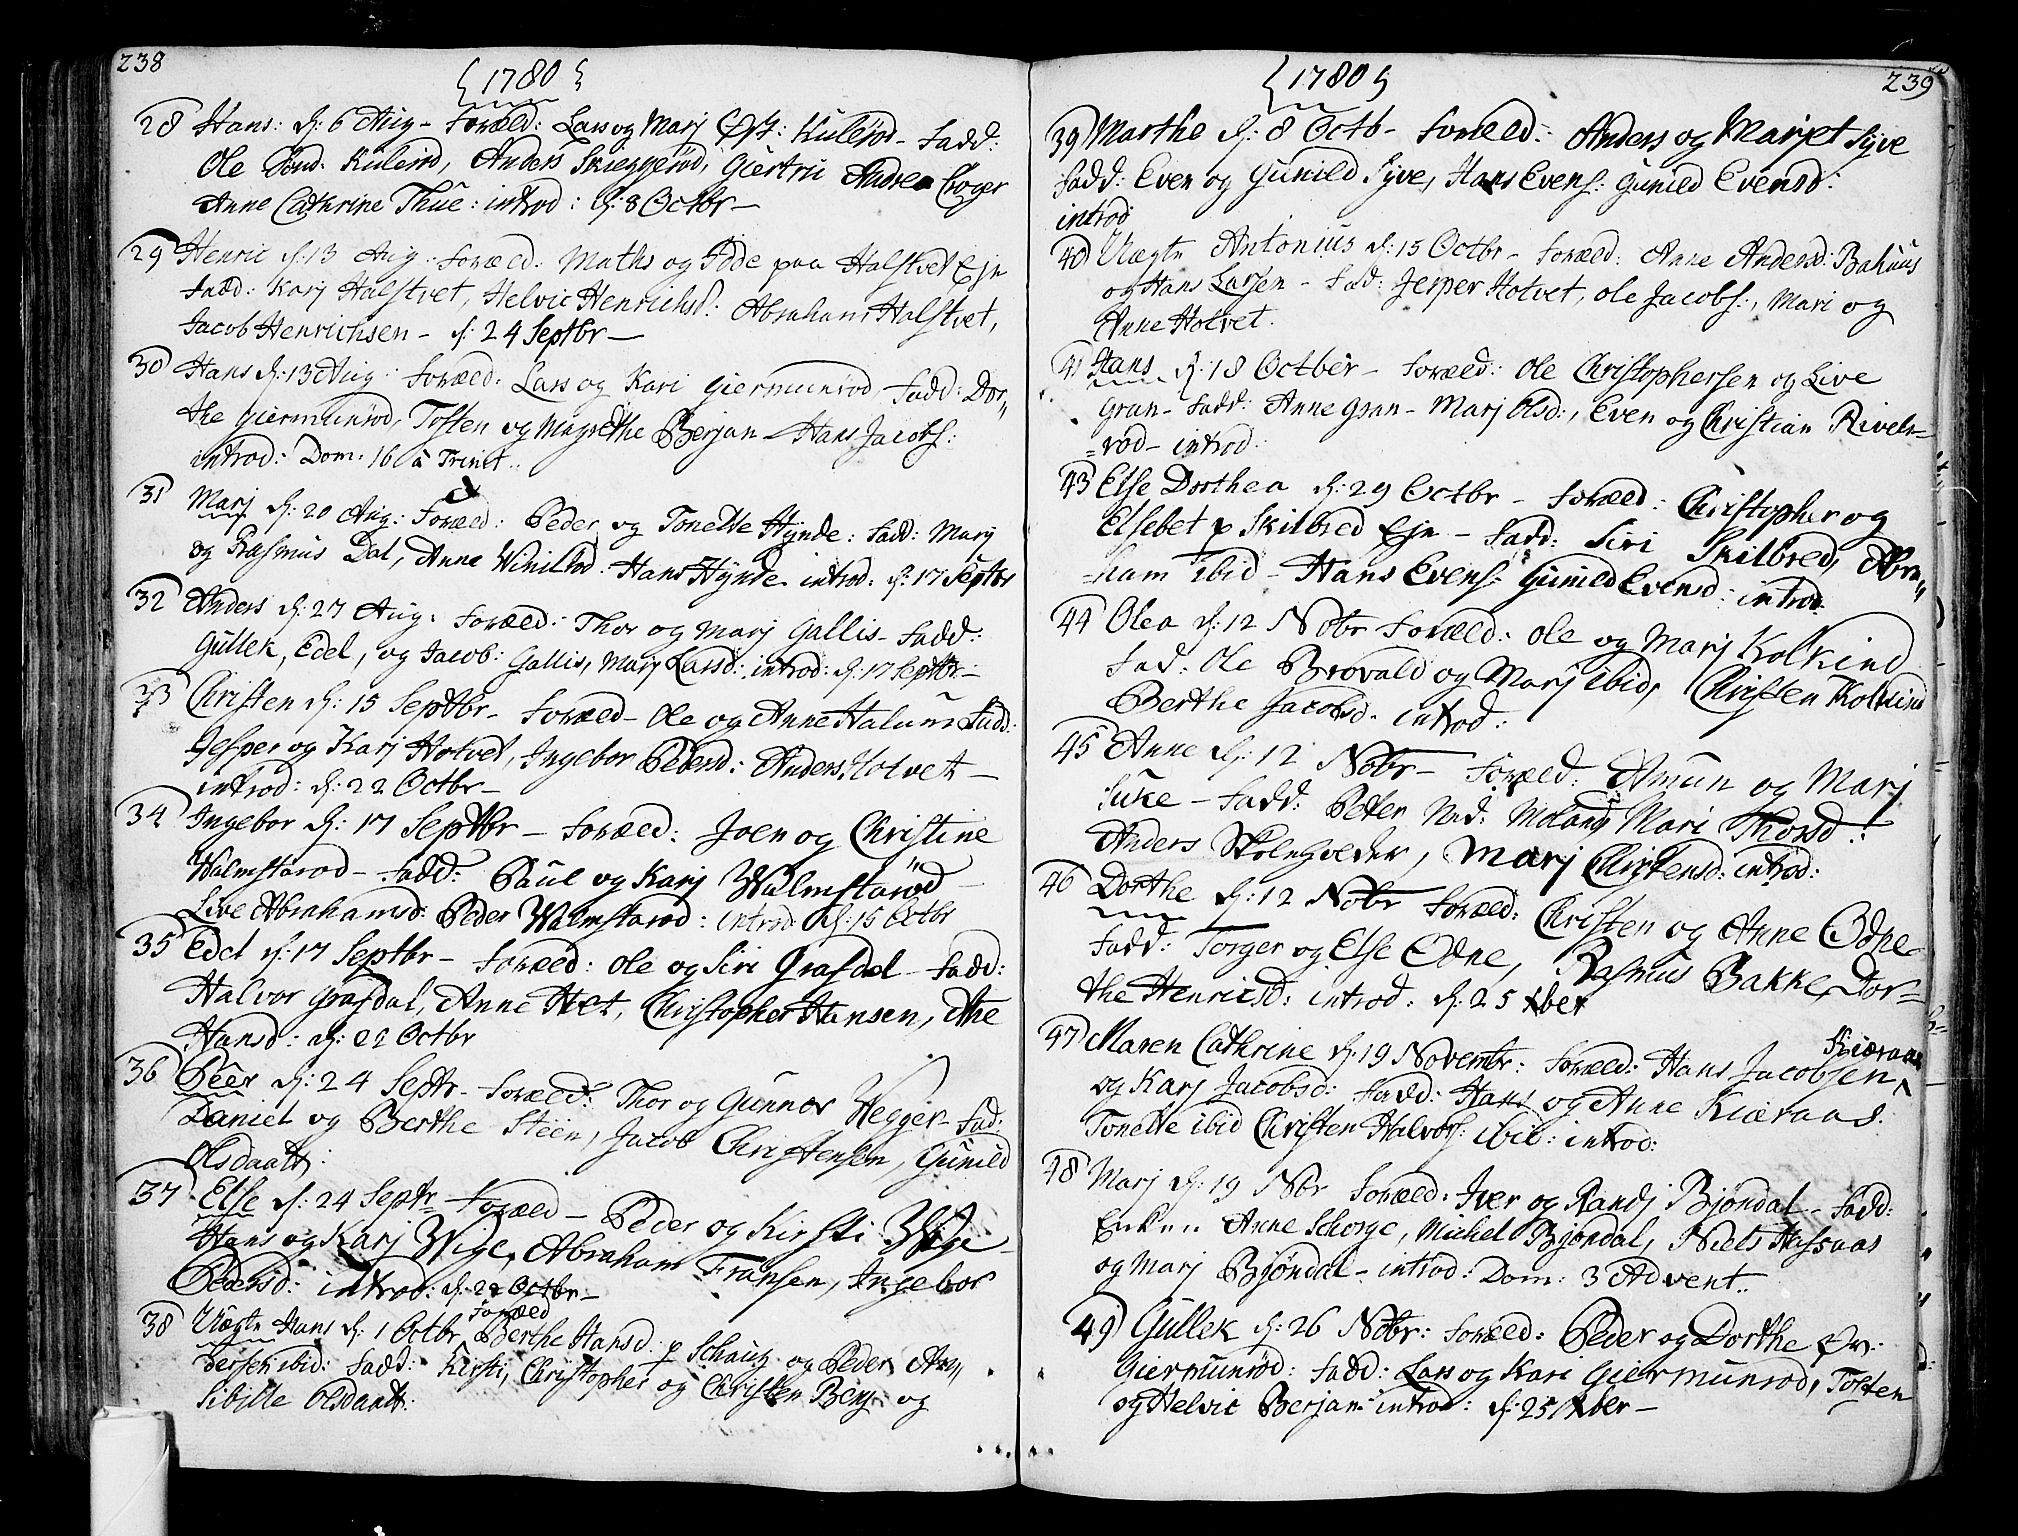 238
{1780}
28 Hans: d: 6 Aug - Foræld: Lars og Marj Øst: Kulerød - Fadd:
Ole Sønd: Kulerød, Anders Skieggerød, Giertru Andrea Croger
Anne Cathrine Thue: introd: d: 8 Octbr -
29 Henric d: 13 Aug. Foræld: Maths og Tøde paa Halstvet Ejn
Fadd: Karj Halstvet, Helvic Henrichsd: Abraham Halstvet,
Jacob Henrichsen - d: 24 Septbr -
30 Hans d: 13 Aug: Foræld: Lars og Kari Giermunrød, Fadd: Dor„
the Giermunrød, Tosten og Magrethe Berjan - Hans Jacobs:
introd: Dom: 16 a Trinit..
31 Marj d: 20 Aug: Foræld: Peder og Tonette Hynde: Fadd: Marj
og Rasmus Dal, Anne Vinilrod: Hans Hynde introd: d: 17 Septbr
32 Anders d: 27 Aug: Foræld: Thor og Marj Gallis - Fadd:
Gullek, Edel, og Jacob: Gallis, Marj Larsd: introd: d: 17 Septbr: -
33 Christen d: 15 Septbr - Foræld - Ole og Anne Halum Fadd:
Jesper og Karj Hotvet, Ingebor Pedersd: Anders Hotvet -
introd: d: 22 Octbr -
34 Ingebor d: 17 Septbr - Foræld: Joen og Christine
Walmstarod - Fadd: Paul og Karj Walmstarød -
Live Abrahamsd: Peder Walmstarod: introd d: 15 Octbr
35 Edel d: 17 Septbr - Foræld: Ole og Siri Grafdal - Fadd:
Halvor Grafdal, Anne Hvet, Christopher Hansen, Ahe
Hansd: d: 22 Octbr
36 Peer d: 24 Septr - Foræld: Thor og Gunnor Vegger - Fad:
Daniel og Berthe Steen, Jacob Christensen, Gunild
Olsdaatt:
37 Else d: 24 Septr - Foræld - Peder og Kirsti Wige
Hans og Karj Wige, Abraham Fransen, Ingebor
Pedersd: introd: d: 22 Octbr -
38 Uægte Hans d: 1 Octbr Foræld Berthe Hansd: p Schaug og Peder An„
dersen ibid: Fadd: Kirsti, Christopher og Christen Berg og
Sibille Olsdaatt:
239
{1780}
39 Marthe d: 8 Octb - Foræld: Anders og Marjet Syve
Fadd: Even og Gunild Syve, Hans Evens: Gunild Evensd:
introd
40 Uægte Antonius d: 15 Octbr - Foræld: Anne Andersd: Bakuus
og Hans Larsen - Fad: Jesper Hotvet, Ole Jacobs:, Mari og
Anne Hotvet.
41 Hans d: 18 Octber - Foræld: Ole Christophersen og Live
Gran - Fadd: Anne Gran - Marj Olsd:, Even og Christian Rivels=
=rød - introd:
43 Else Dorthea d: 29 Octbr - Foræld: Christopher og
Elsebet p Skilbred Ejn - Fadd: Siri Skilbred, Abra„
=ham ibid - Hans Evens: Gunild Evensd: introd
44 Olea d: 12 Nobr Foræld: Ole og Marj Kolkind
Fad: Ole Brovald og Marj ibid, Christen Kolkind
Berthe Jacobsd: introd:
45 Anne d: 12 Nobr - Foræld: Amun og Marj
Suke - Fadd: Peter Ned: Moland Mari Thorsd:
Anders Skoleholder, Marj Christensd: introd:
46 Dorthe d: 12 Nobr Foræld: Christen og Anne Odne
Fadd: Torger og Else Odne, Rasmus Bakke, Dor=
the Henricsd: introd: d: 25 xber
47 Maren Cathrine d: 19 Novembr: Foræld: Hans Jacobsen Kiæraas
og Karj Jacobsd: Fadd: Hans og Anne Kiæraas:
Tonette ibid Christen Halvors: ibid: introd:
48 Marj d: 19 Nbr Foræld: Iver og Randj Bjøndal - Fadd:
Anne Schorge, Michel Bjøndal, Niels Hassaas
og Marj Bjøndal - introd: Dom: 3 Advent..
49 Gullek d: 26 Nobr: Foræld: Peder og Dorthe Øv:
Giermunrød: Fadd: Lars og Kari Giermunrod, Tosten
og Helvic Berjan introd: d: 25 xber -